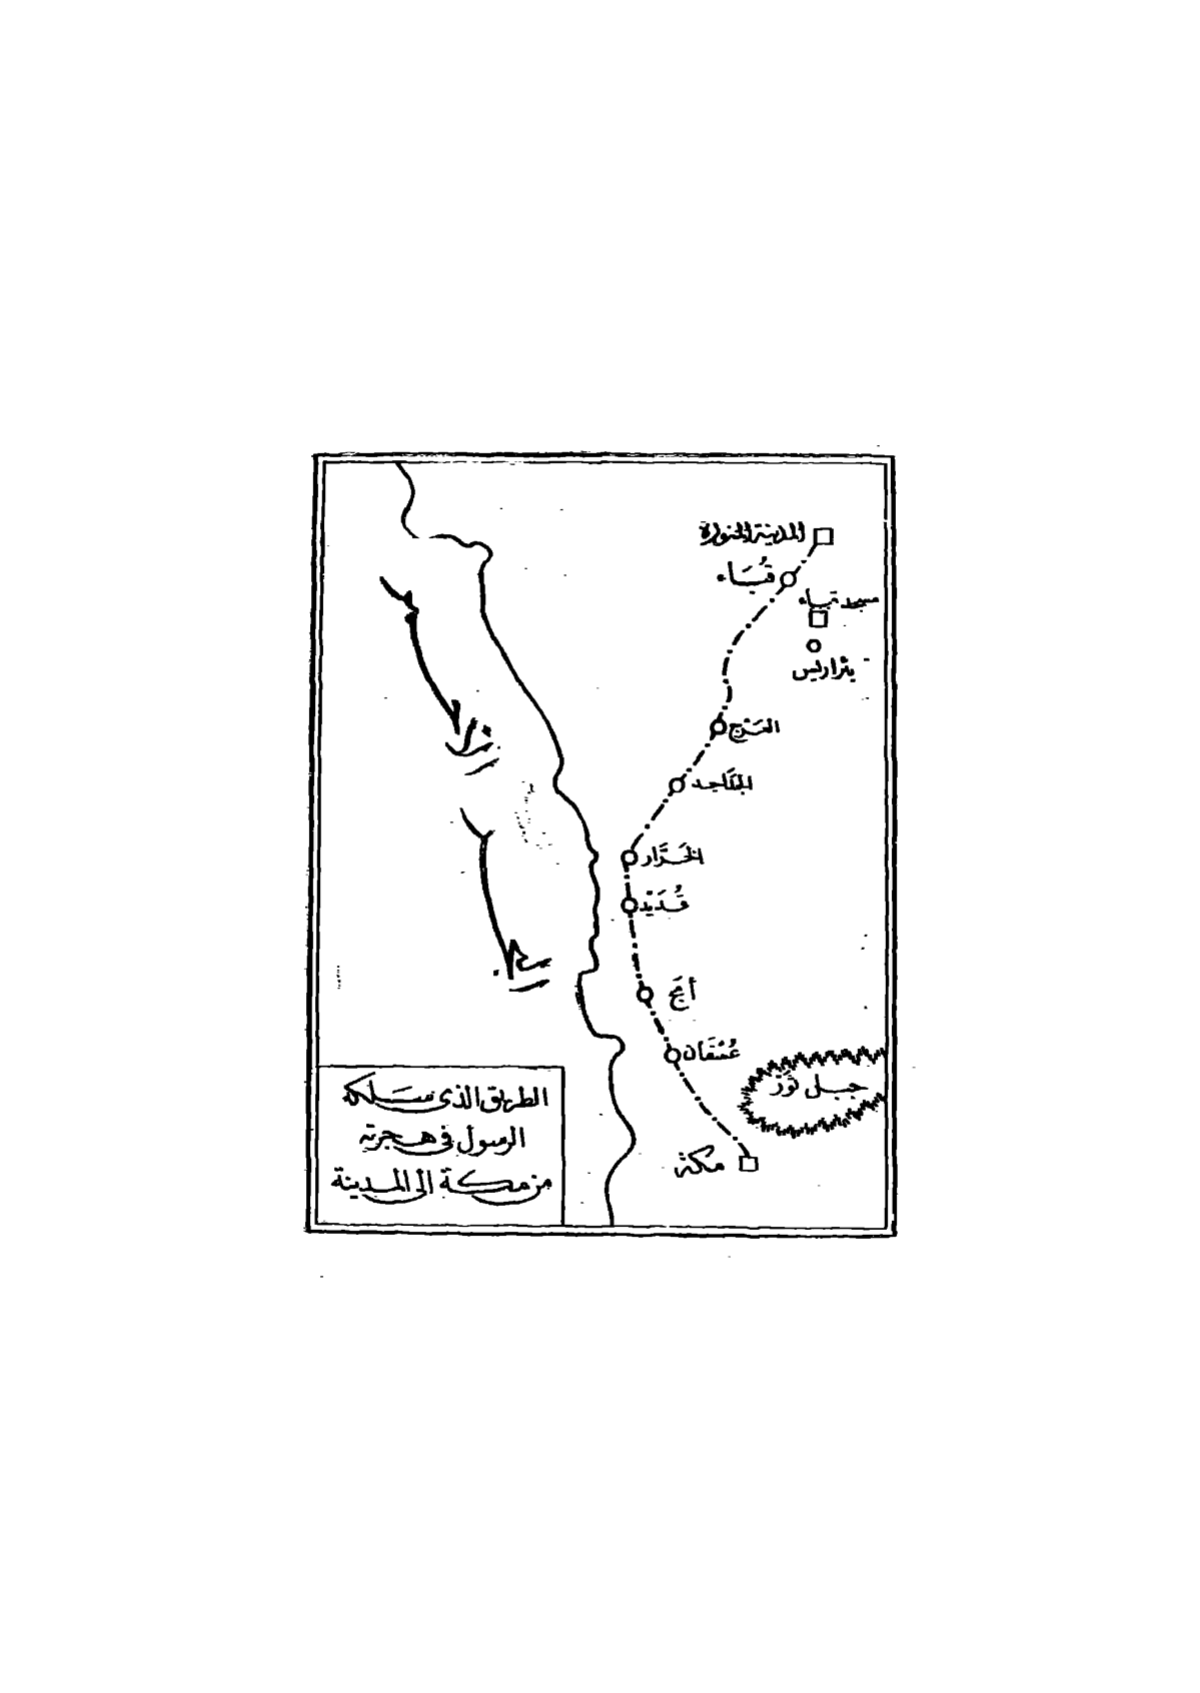 المدينة المنورة
قُبَاء
مسجد قباء
بئر اريس
العَرْج
الجَدَاجد
الخَرَّار
قُدَيْد
أمَج
عُسْفَان
جبل ثَوْر
مكة
البحر
الأحمر
الطريق الذى سَلكه
الرسول فى هجرته
من مكة الى المدينة